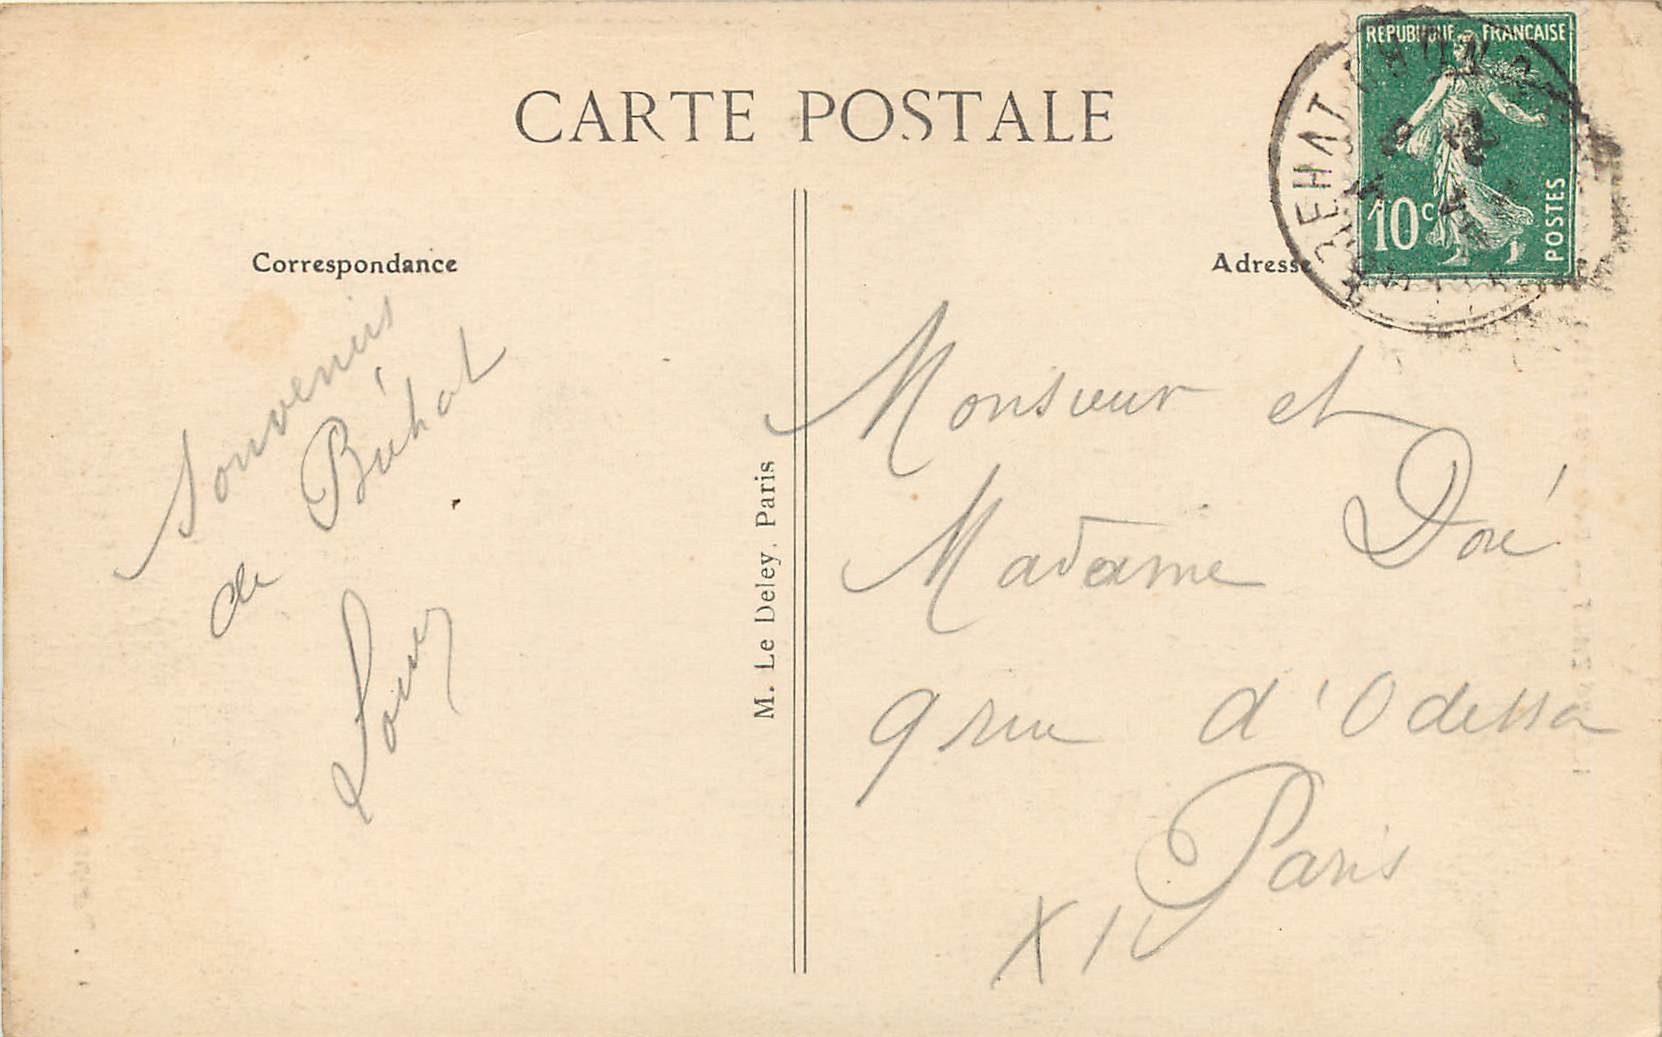 CARTE POSTALE
REPUBLIQUE FRANÇAISE
10c
POSTES
BREHAT
Correspondance
Adresse
Souvenirs
de Bréhat
M. Le Deley, Paris
Monsieur et
Madame Doré
9 rue d'Odessa
Paris
XIV